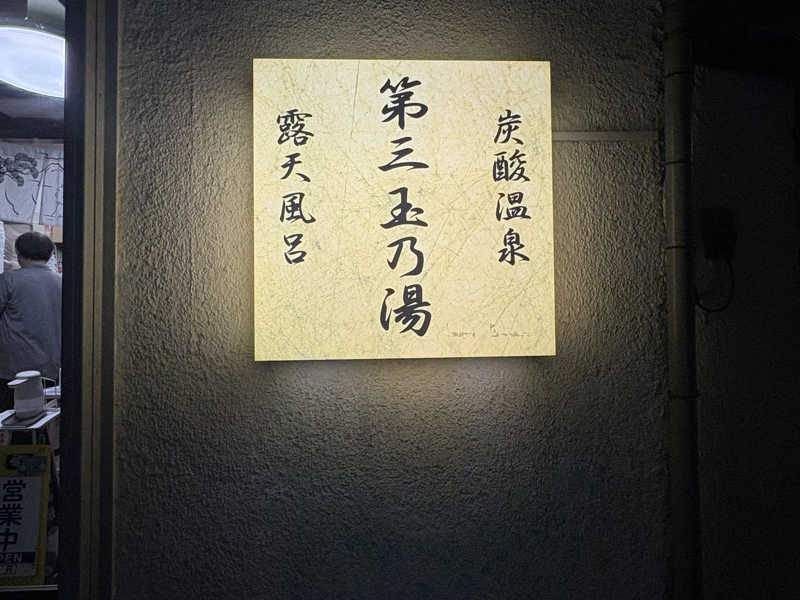 炭酸温泉
第三玉乃湯
露天風呂
営業中
OPEN